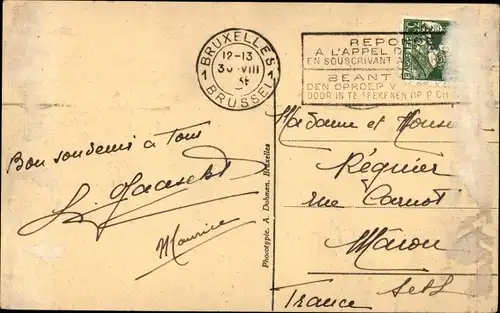 BRUXELLES
12-13
VIII
1 1
BRUSSEL
REPO
A L'APPEL D
EN SOUSCRIVANT A
BEANT
DEN OPROEP V
DOOR IN TE TEEKENEN OP
Bon souvenir a Tous
Maurice
Phototypie. A. Dohmen, Bruxelles
Madame et
Régnier
rue Carnot
Mâcon
S et L
France